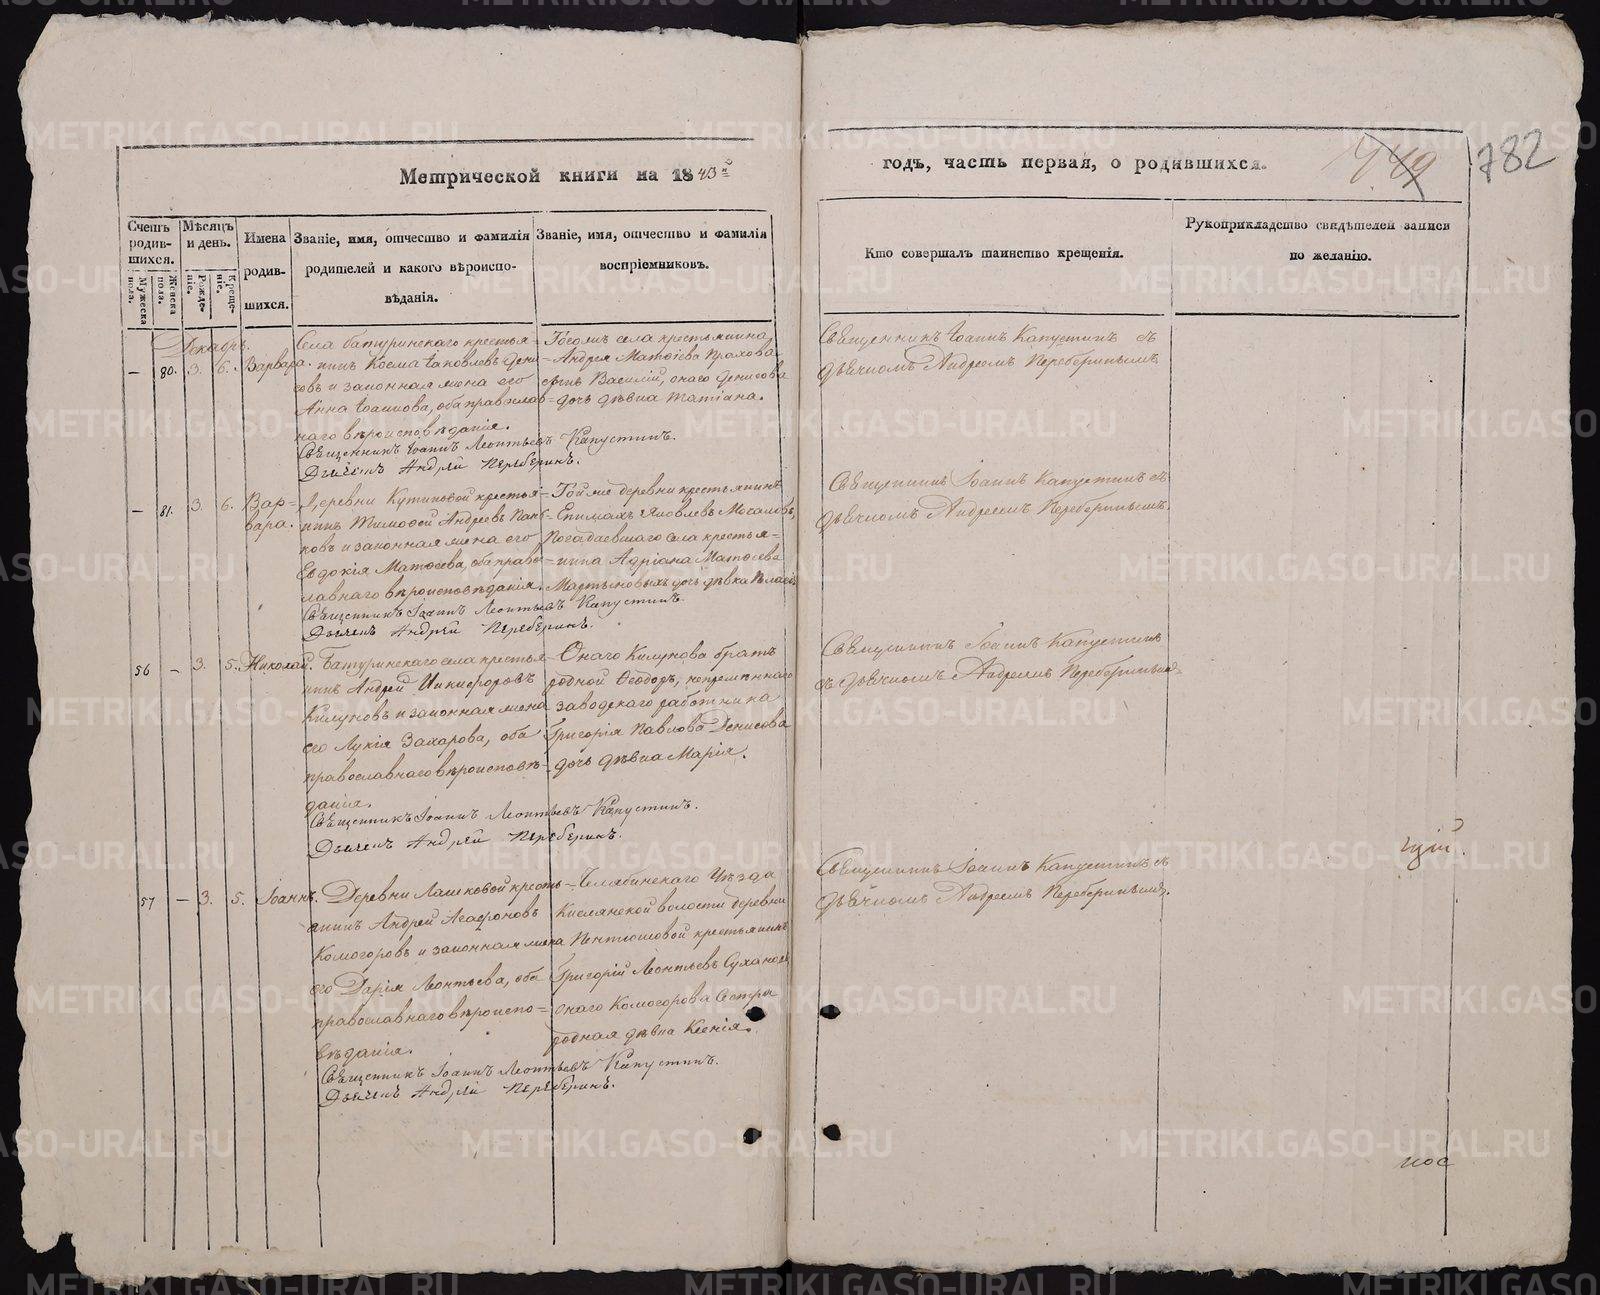 Метрической книги на 1843й
годъ, часть первая, о родившихся.
749
782
Счетъ родив-шихся.
Мужеска пола.
Женска пола.
Мѣсяцъ и день.
Рожде-ніе.
Креще-ніе.
Имена родив-шихся.
Званіе, имя, отчество и фамилія
родителей и какого вѣроиспо-
вѣданія.
Званіе, имя, отчество и фамилія
воспріемниковъ.
Кто совершалъ таинство крещенія.
Рукоприкладство свидѣтелей записи
по желанію.
Декабрь.
— 80. 3. 6. Варвара.
Села батуринскаго крестья-
нинъ Косма Іаковлевъ Дени-
совъ и законная жена его
Анна Іоаннова, оба православ-
наго вѣроисповѣданія.
Священникъ Іоаннъ Леонтьевъ Капустинъ.
Дьячекъ Андрей Переберинъ.
Тогожъ села крестьянина
Андрея Матѳіева
сынъ Василій, онаго Денисова
дочь дѣвка Татіана.
Священникъ Іоаннъ Капустинъ съ
дьячкомъ Андреемъ Переберинымъ
— 81. 3. 6. Вар-
вара.
Деревни Кутиковой крестья-
нинъ Тимофей Андреевъ Пань-
ковъ и законная жена его
Евдокія Матѳіева, оба право-
славнаго вѣроисповѣданія.
Священникъ Іоаннъ Леонтьевъ Капустинъ.
Дьячекъ Андрей Переберинъ.
Той же деревни крестьянинъ
Епимахъ Яковлевъ
села крестья-
нина Адріана Матѳіева
Мартыновыхъ дочь дѣвка
Священникъ Іоаннъ Капустинъ съ
дьячкомъ Андреемъ Переберинымъ.
56 — 3. 5. Николай.
Батуринскаго села крестья-
нинъ Андрей Никифоровъ
Килуновъ и законная жена
его Лукія Захарова, оба
православнаго вѣроисповѣ-
данія.
Священникъ Іоаннъ Леонтьевъ Капустинъ.
Дьячекъ Андрей Переберинъ.
Онаго Килунова братъ
родной Ѳеодоръ, непременнаго
заводскаго работника
Григорія Павлова Денисова
дочь дѣвка Марія.
Священникъ Іоаннъ Капустинъ
съ дьячкомъ Андреемъ Переберинымъ
57 — 3. 5. Іоаннъ.
Деревни Лашковой кресть-
янинъ Андрей Агафоновъ
Комогоровъ и законная жена
его Дарія Леонтьева, оба
православнаго вѣроиспо-
вѣданія.
Священникъ Іоаннъ Леонтьевъ Капустинъ.
Дьячекъ Андрей Переберинъ.
Челябинскаго Уѣзда
Кислянской волости деревни
Пентюшовой крестьянинъ
Григорій Леонтьевъ Сухановъ
онаго Комогорова сестра
родная дѣвка Ксенія.
Священникъ Іоаннъ Капустинъ съ
дьячкомъ Андреемъ Переберинымъ.
цій.
нос
METRIKI.GASO-URAL.RU